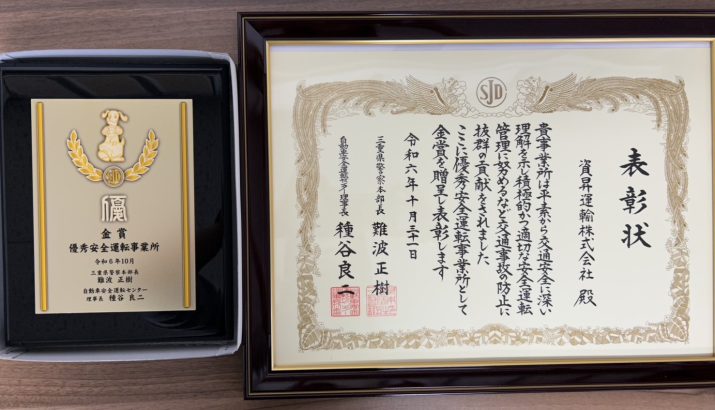 SJDC
優
金賞
優秀安全運転事業所
令和6年10月
三重県警察本部長
難波 正樹
自動車安全運転センター
理事長 種谷 良二
SJDC
表彰状
資昇運輸株式会社 殿
貴事業所は平素から交通安全に深い
理解を示し積極的かつ適切な安全運転
管理に努めるなど交通事故の防止に
抜群の貢献をされました
ここに優秀安全運転事業所として
金賞を贈呈し表彰します
令和六年十月三十一日
三重県警察本部長 難波正樹
自動車安全運転センター理事長 種谷良二